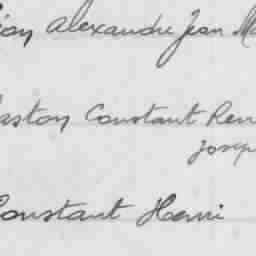 Alexandre Jean
Gaston Constant René
Joseph
Constant Henri